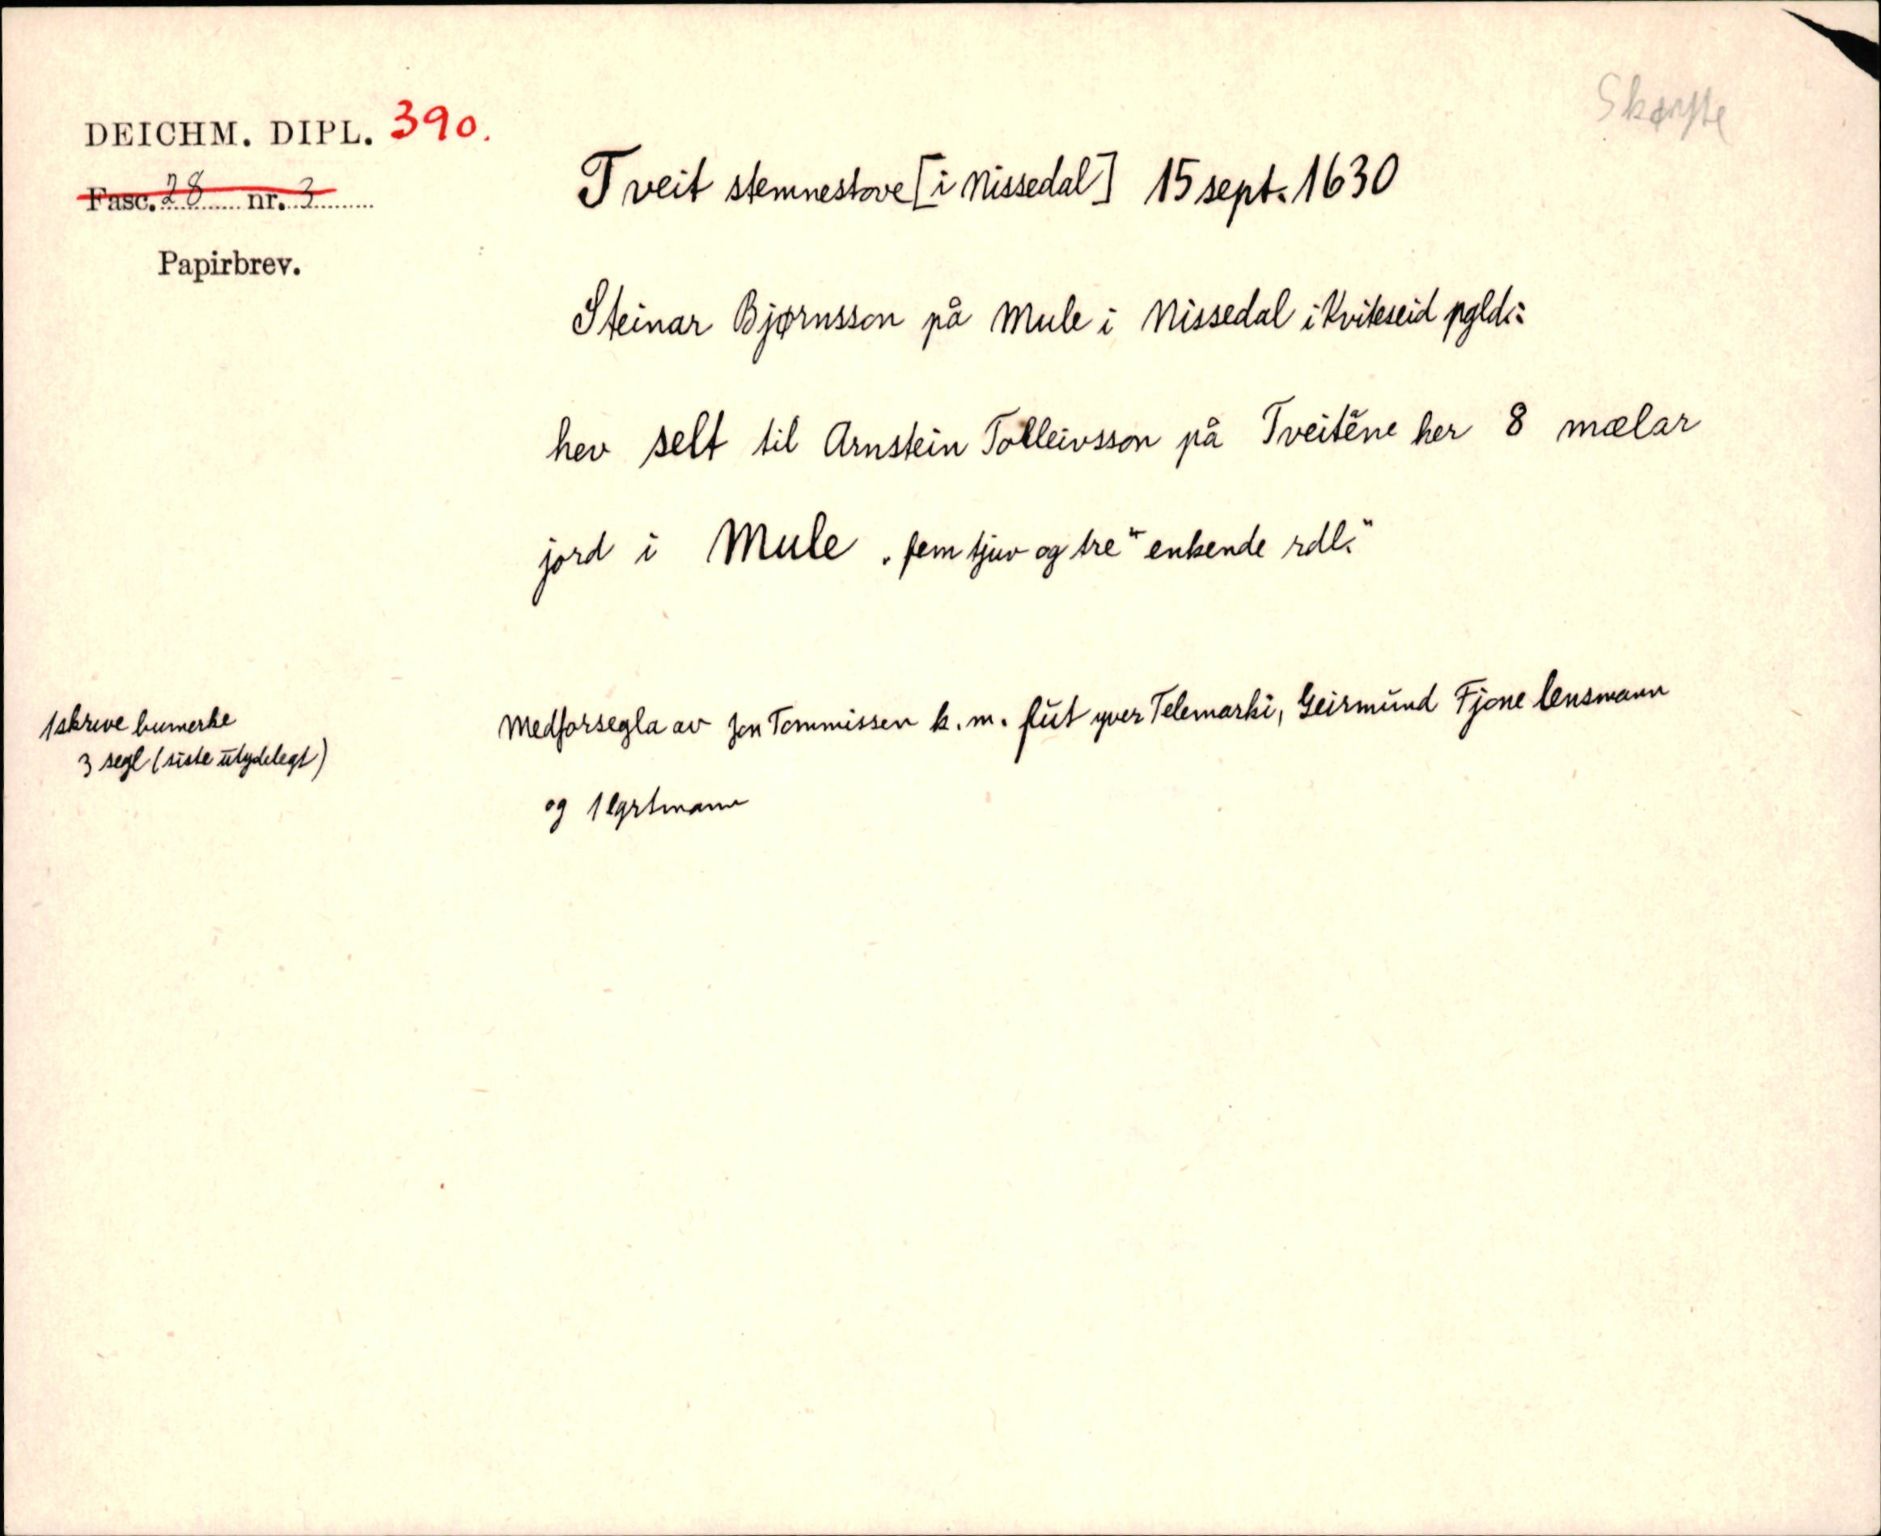 Skøyte
DEICHM. DIPL. 390.
Fasc. 28 nr. 3
Papirbrev.
Tveit stemnestove [i Nissedal] 15 sept. 1630
Steinar Bjørnsson på Mule i Nissedal i Kviteseid pgld.:
hev selt til Arnstein Tolleivsson på Tveitĕne her 8 mælar
jord i Mule „fem tjuv og tre" enkende rdl."
1 skrive bumerke
3 segl (siste utydelegt)
Medforsegla av Jon Tommissen k. m. fut yver Telemarki, Geirmund Fjone lensmann
og 1 lgrtmann